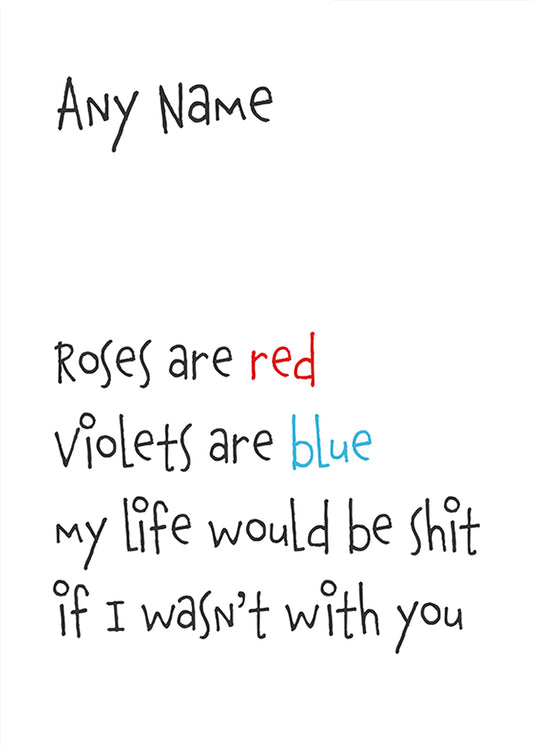 Any Name
Roses are red
Violets are blue
my life would be shit
if I wasn't with you